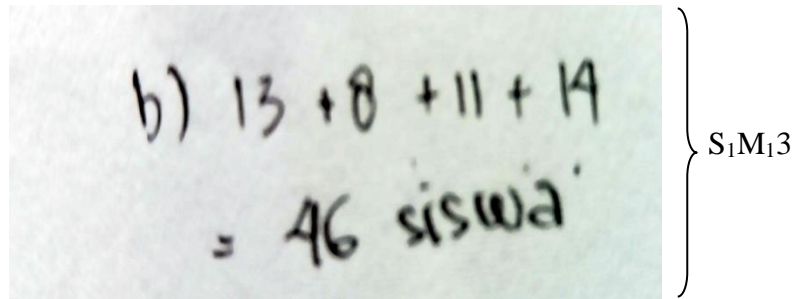 b) 13 + 8 + 11 + 14
= 46 siswa
S₁M₁3